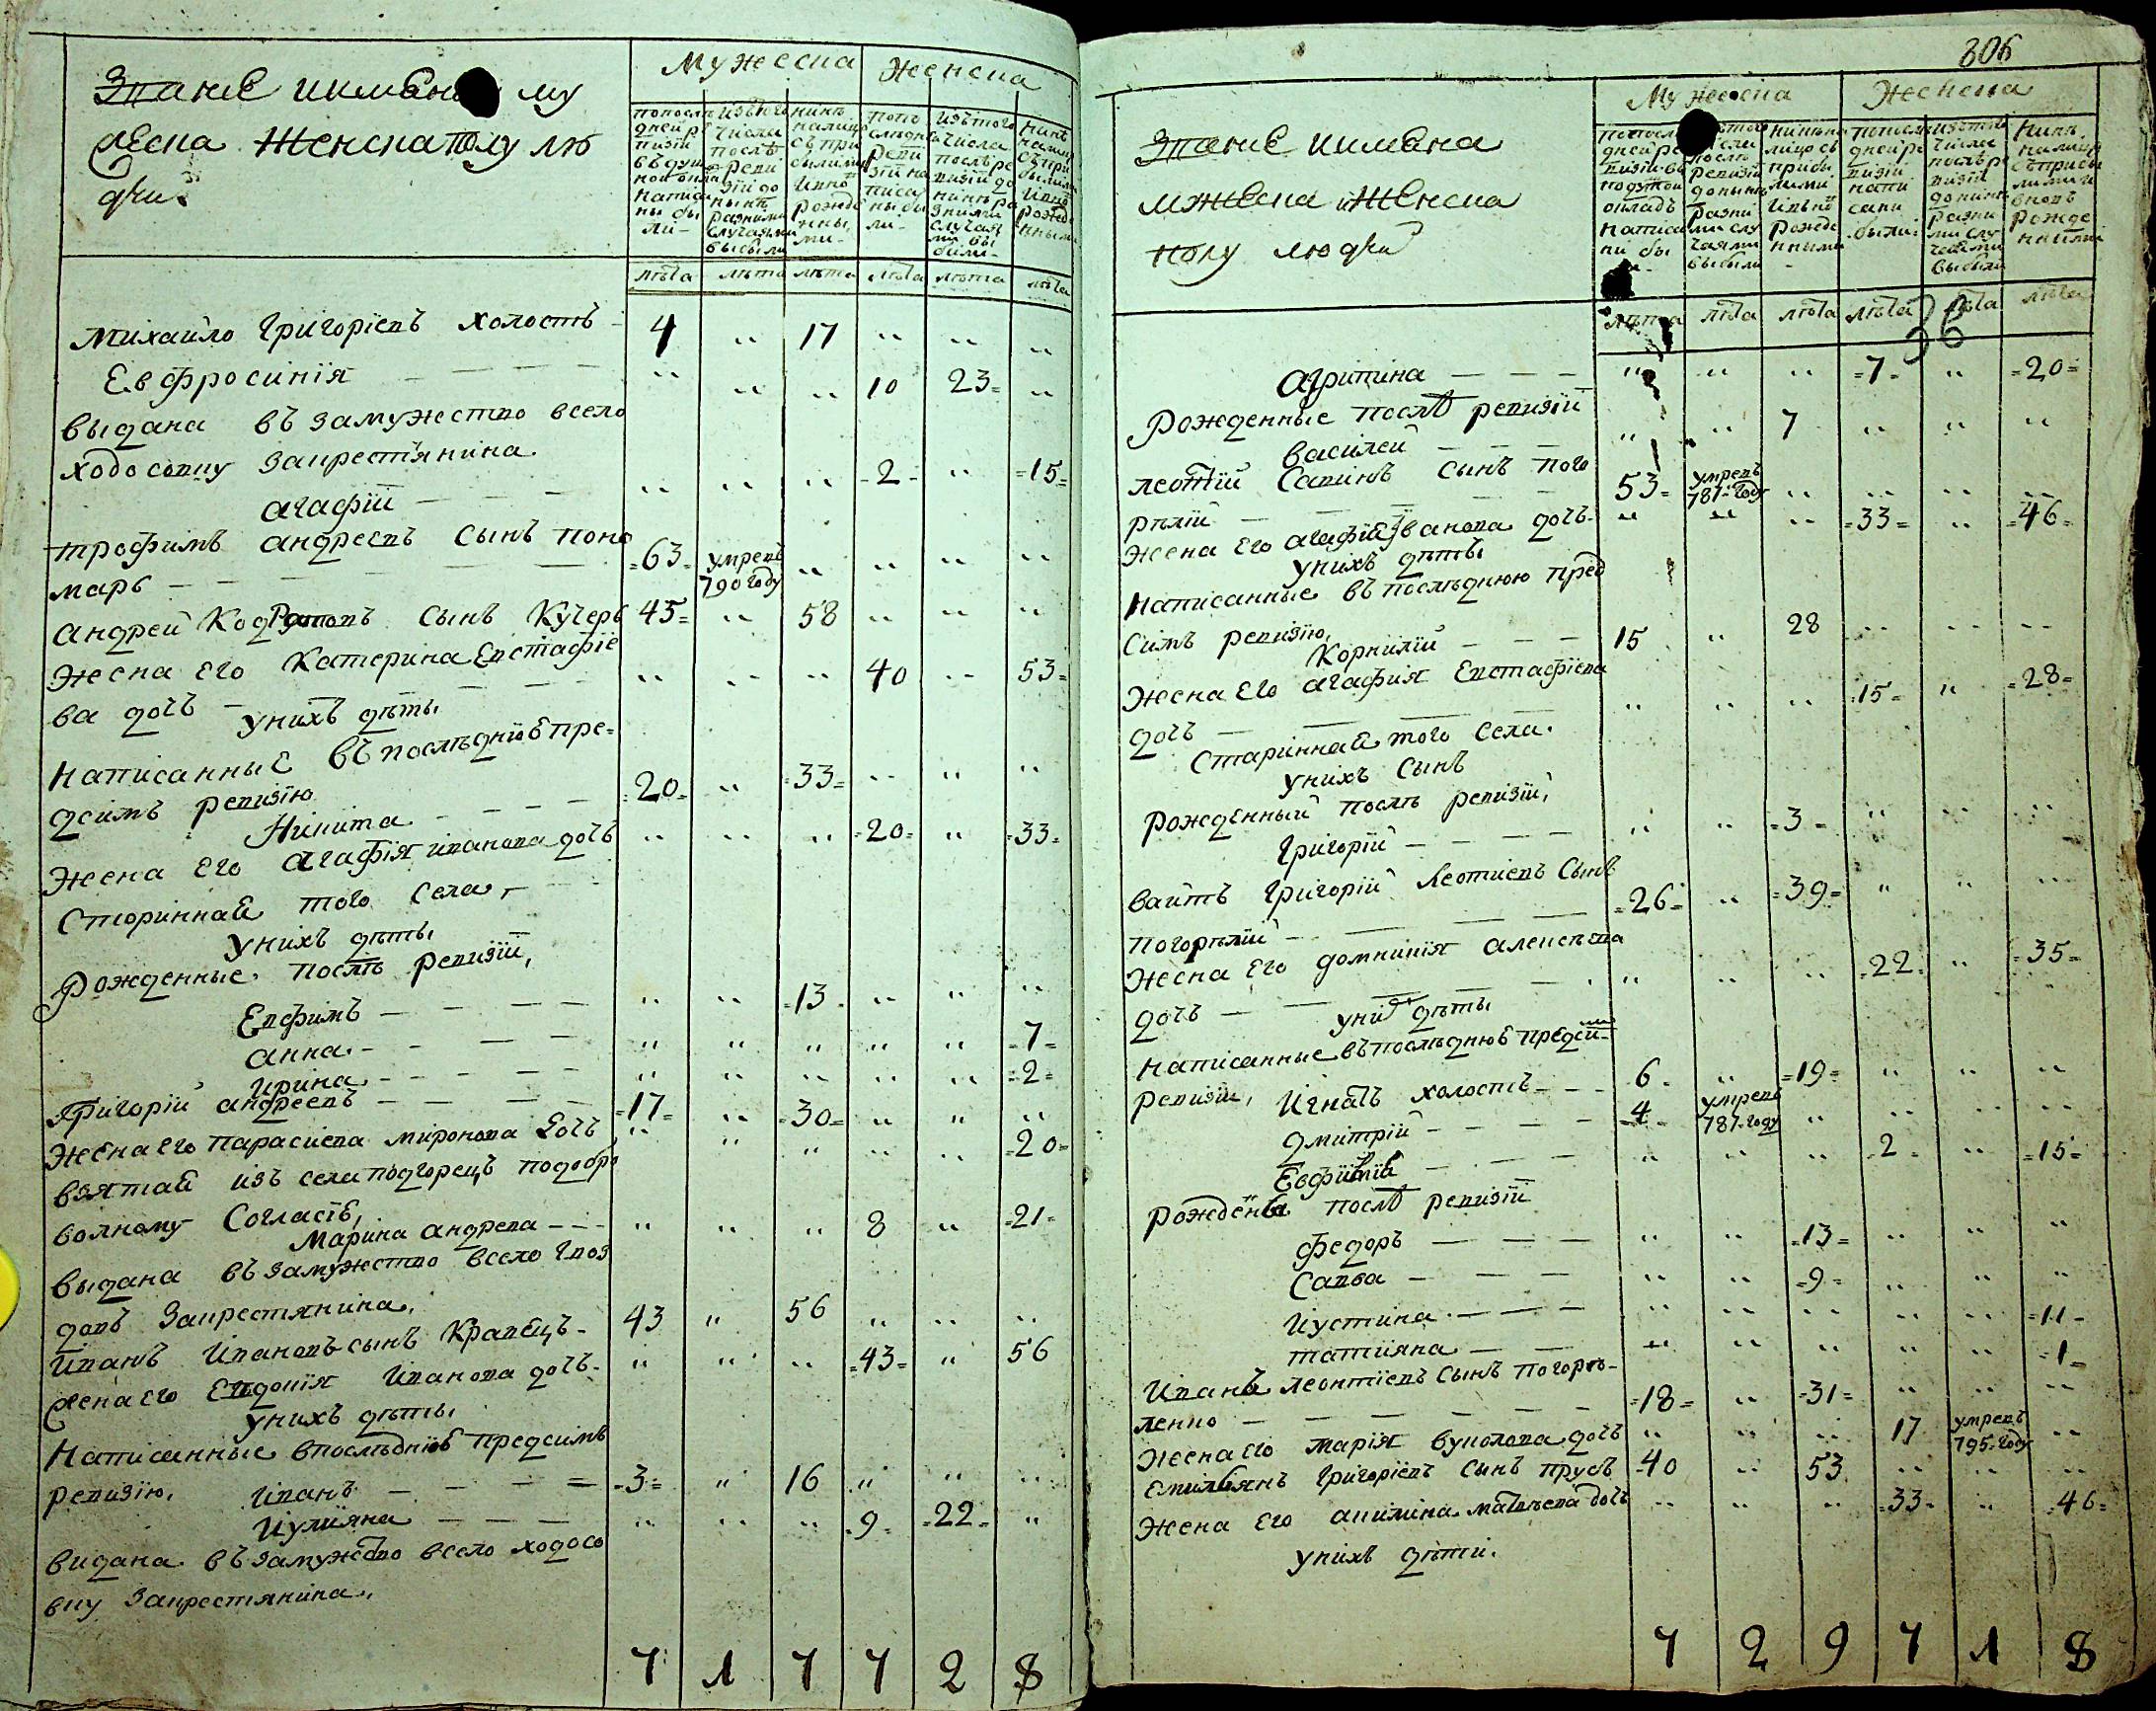 Званіе иимена му
жеска женска полу лю
дей
Мужеска
Женска
попослѣ
дней ре
визіи
въ душ
ной окла
написа
ны бы
ли
изъ того
числа
послѣ
реви
зіи до
нынѣ
разними
случаями
выбыли
нинѣ
налицо
съ при
былими
ивно
рожде
нны
ми
попо
следне
реви
зіи на
писа
ны бы
ли
изътого
числа
послѣ ре
визіи до
нинѣ ра
зними
случая
ми вы
были
нинѣ
налиц
съ при
былими
ивно
рожде
нными
лѣта лѣта лѣта лѣта лѣта лѣта
Михайло Григоріевъ холостъ 4 " 17 " " "
Евфросинія " " " 10 23 "
выдана въ замужство всело
ходосовку закрестянина
агафій " " " 2 " 15
трофимъ андреевъ сынъ поно
марь 63 умревъ 790 году " " " "
андрей Кодратовъ сынъ Кучеръ 45 " 58 " " "
жена его Катерина Евстафіе
ва дочъ " " " 40 " 53
унихъ дѣты
Написанные въ послѣднюю пре
дсимъ ревизію
Никита 20 " 33 " " "
жена его агафія иванова дочъ " " " 20 " 33
Старинная того села,
унихъ дѣты
Рожденные послѣ ревизіи,
Евфимъ " " 13 " " "
анна " " " " " 7
ирина " " " " " 2
Григорій андреевъ 17 " 30 " " "
жена его параскева миронова дочъ " " " " " 20
взятая изъ села подгорецъ подобро
волному Согласію,
марина андреева " " " 8 " 21
выдана въ замужство всело гвоз
довъ Закрестянина,
Иванъ Ивановъ сынъ Кравецъ 43 " 56 " " "
жена его Евдокія Иванова дочъ " " " 43 " 56
унихъ дѣты
Написанные впослѣднюю предсимъ
ревизію, иванъ 3 " 16 " " "
Иулияна " " " 9 22 "
видана въ замужство всело ходосо
вку Закрестянина,
7 1 7 7 2 8
306
Званіе иимена
мжеска иженска
полу людей
Мужеска
Женска
попослѣ
дней ре
визіи въ
подушной
окладъ
написа
ни бы
ли
числа
послѣ
ревизіи
донынѣ
разни
ми слу
чаями
выбыли
нинѣна
лицо съ
прибы
лими
ивнов
рожде
нними
попослѣ
дней ре
визіи
напи
сани
были
изътого
числа
послѣ ре
визіи
донинѣ
разни
ми слу
чаями
выбыли
нинѣ
налиц
съприбы
лими и
вновъ
рожде
нними
лѣта лѣта лѣта лѣта лѣта лѣта
36
агрипина " " " 7 " 20
Рожденные послѣ ревизіи
василей " " 7 " " "
леотій Савинъ сынъ пого
рѣлій 53 умревъ 787 году " " " "
жена его агафія Иванова дочъ " " " 33 " 46
унихъ дѣты
Написанные въ послѣднюю пред
симъ ревизію,
Корнилій 15 " 28 " " "
жена его агафия Евстафіева
дочъ " " " 15 " 28
Старинная того села.
унихъ сынъ
Рожденный послѣ ревизіи,
Григорій " " 3 " " "
вайтъ Григорій Леотиевъ сынъ
погорѣлій 26 " 39 " " "
жена его домникія алексѣева
дочъ " " " 22 " 35
унихъ дѣты
Написанные въ послѣднюю предсим
ревизіи, Игнатъ холостъ 6 " 19 " " "
дмитрій 4 умревъ 787 году " " " "
Евфимія " " " 2 " 15
Рожденые послѣ ревизіи
федоръ " " 13 " " "
Савва " " 9 " " "
иустина " " " " " 11
татияна " " " " " 1
Иванъ леонтіевъ сынъ погорѣ
ленко 18 " 31 " " "
жена его марія вуколова дочъ " " " 17 умревъ 795 году "
Емилиянъ Григоріевъ сынъ прусъ 40 " 53 " " "
жена его акилина матвѣева дочъ " " " 33 " 46
унихъ дѣти.
7 2 9 7 1 8